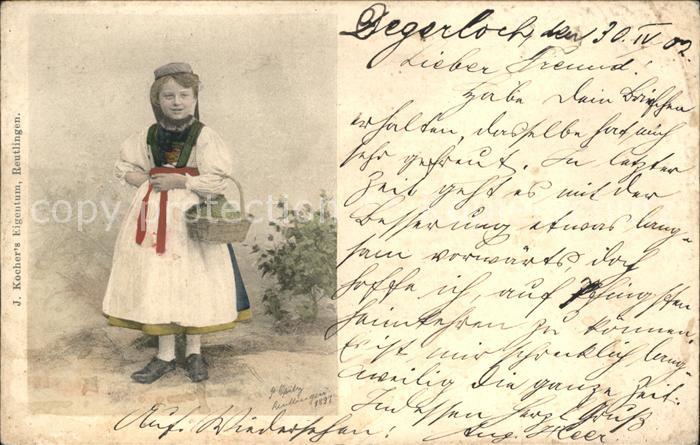 J. Kocher's Eigentum, Reutlingen.
Degerloch, den 30. IV 02.
Lieber Freund!
Habe Dein Briefchen
erhalten, dasselbe hat mich
sehr gefreut. In letzter
Zeit geht es mit der
Besserung etwas lang-
sam vorwärts, doch
hoffe ich, auf Pfingsten
heimkehren zu können.
Es ist mir schrecklich lang-
weilig die ganze Zeit.
Indessen herzl. Gruß
Auf Wiedersehen!
Reutlingen
1897
copyright